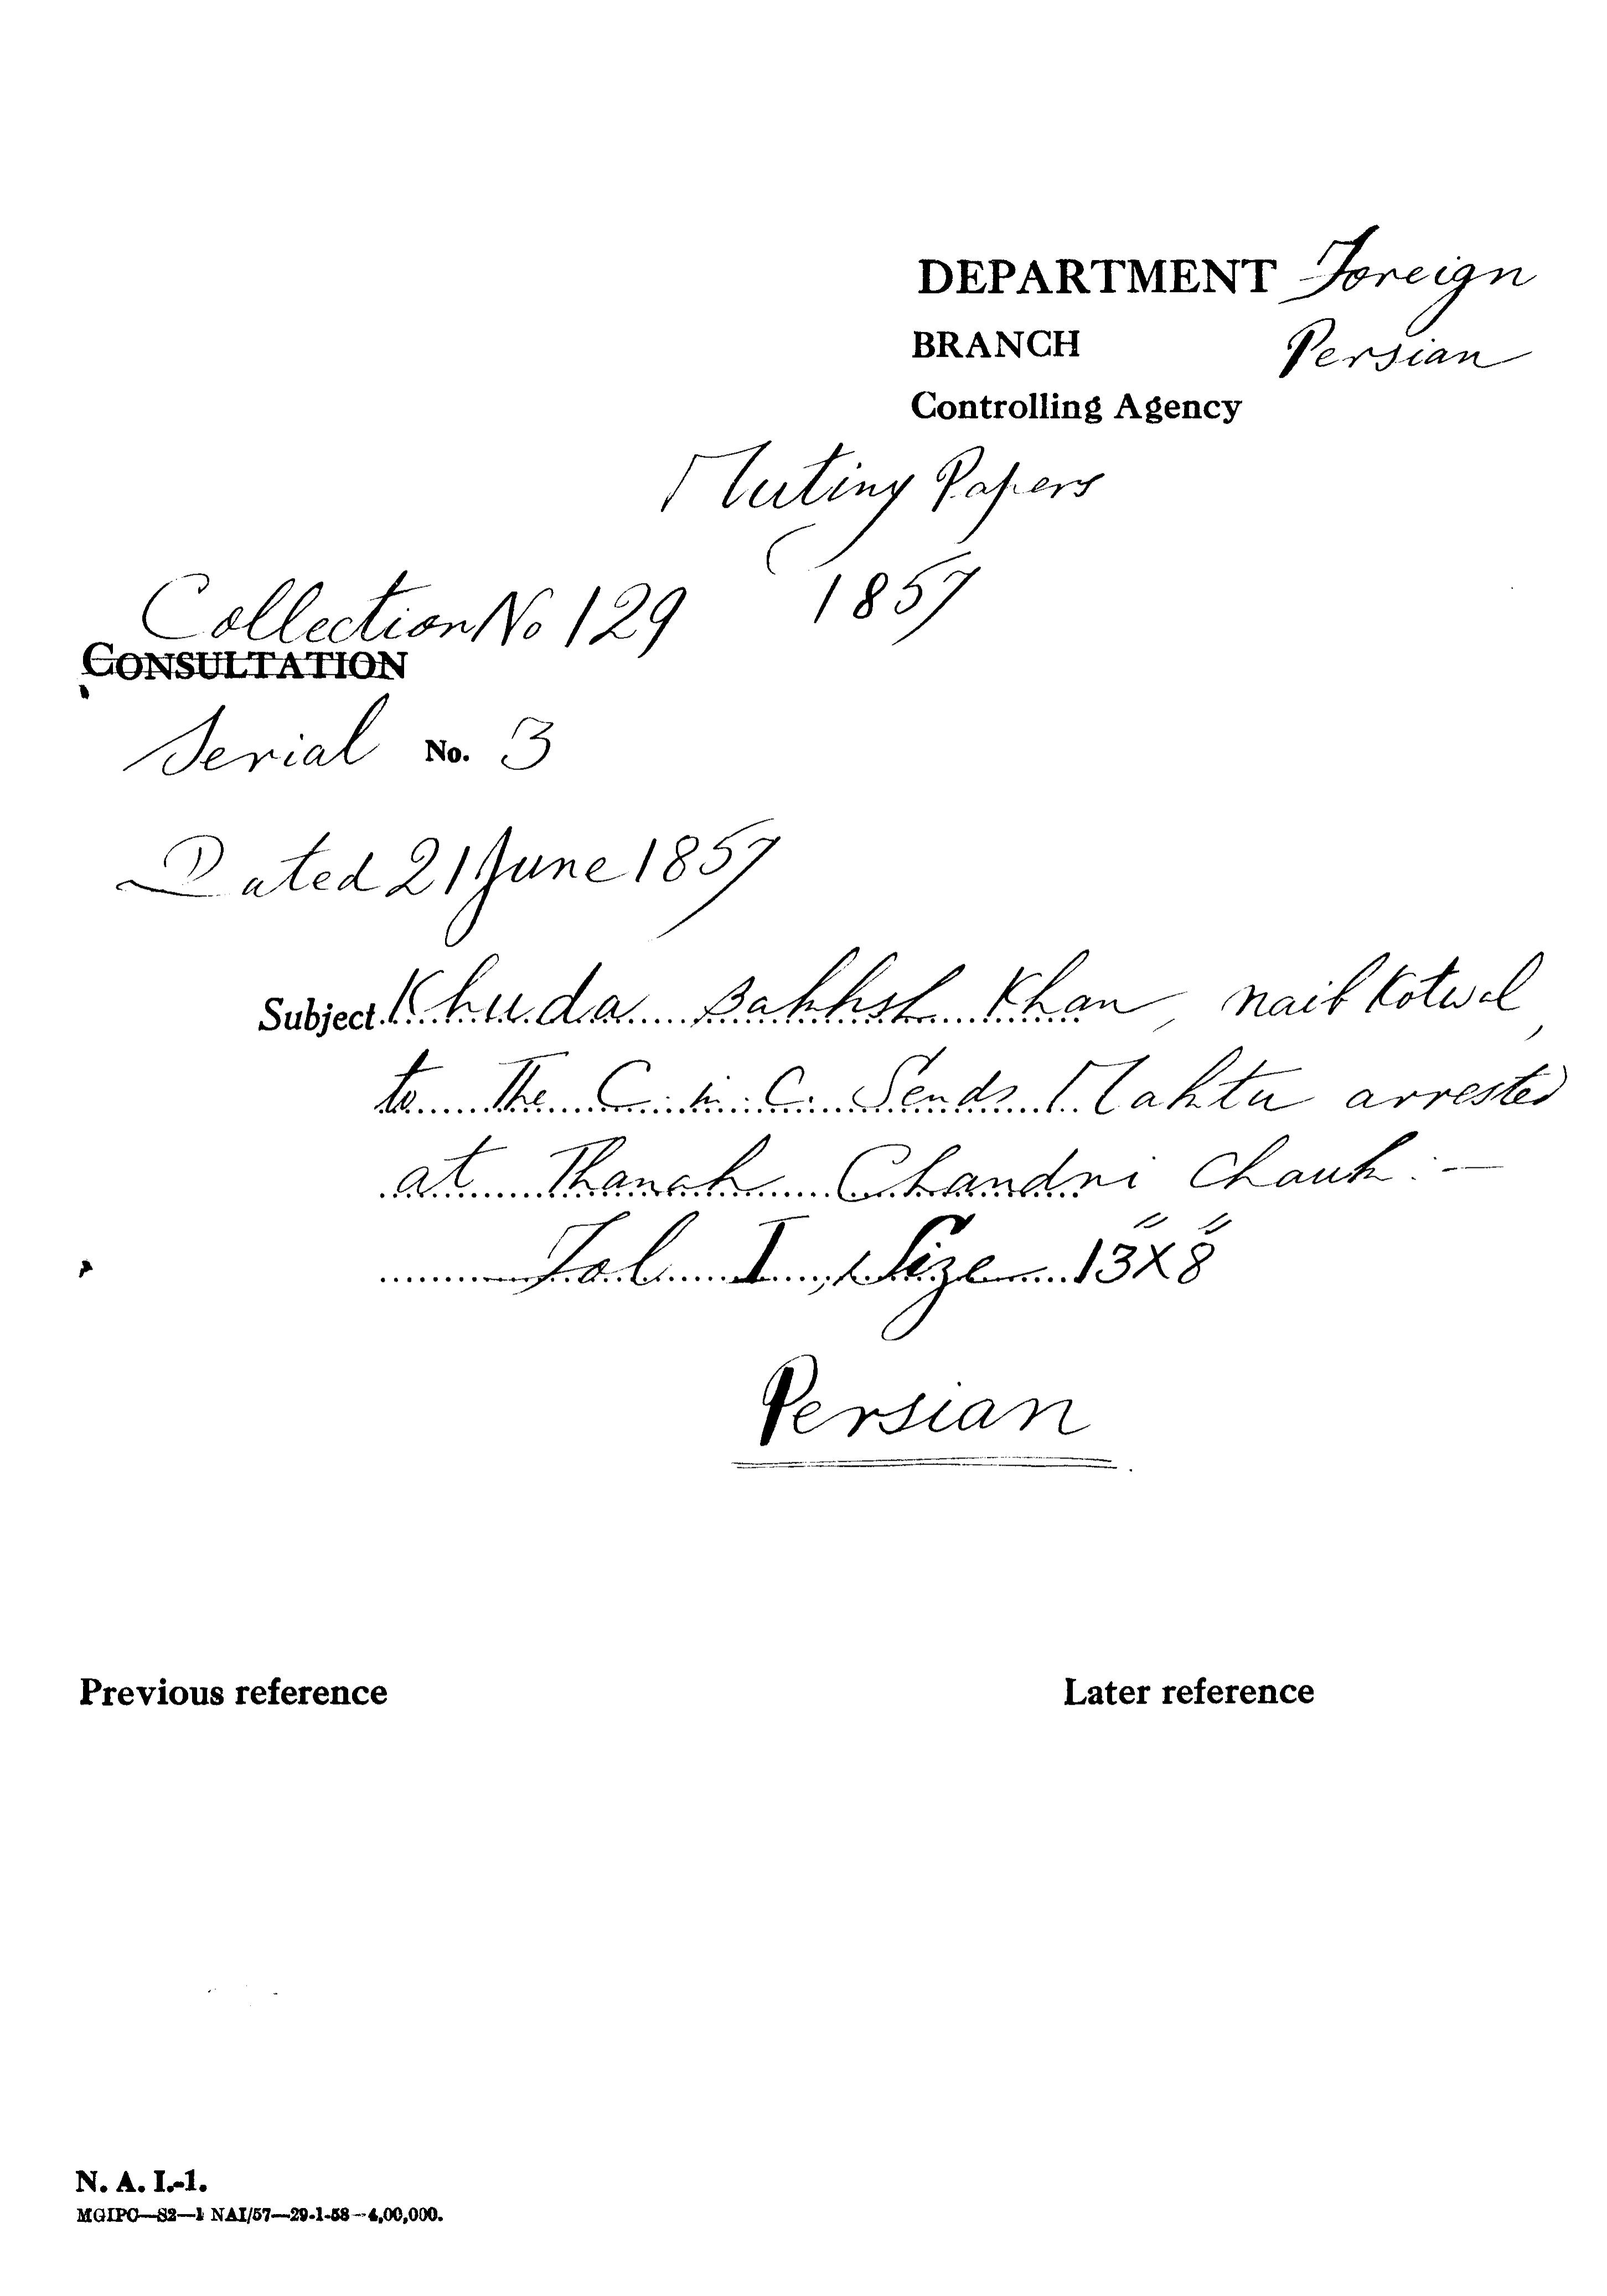 DEPARTMENT Foreign
BRANCH Persian
Controlling Agency
Mutiny Papers
1857
Collection No 129
CONSULTATION
Serial No. 3
Dated 21 June 1857
Subject Khuda Bakhsh Khan, naib Kotwal,
to The C. in C. Sends Mahtu arrested
at Thanah Chandni Chauk :—
Fol I, Size 13"X8"
Persian
Previous reference Later reference
N. A. I.-1.
MGIPC—S2—1 NAI/57—29-1-58—4,00,000.